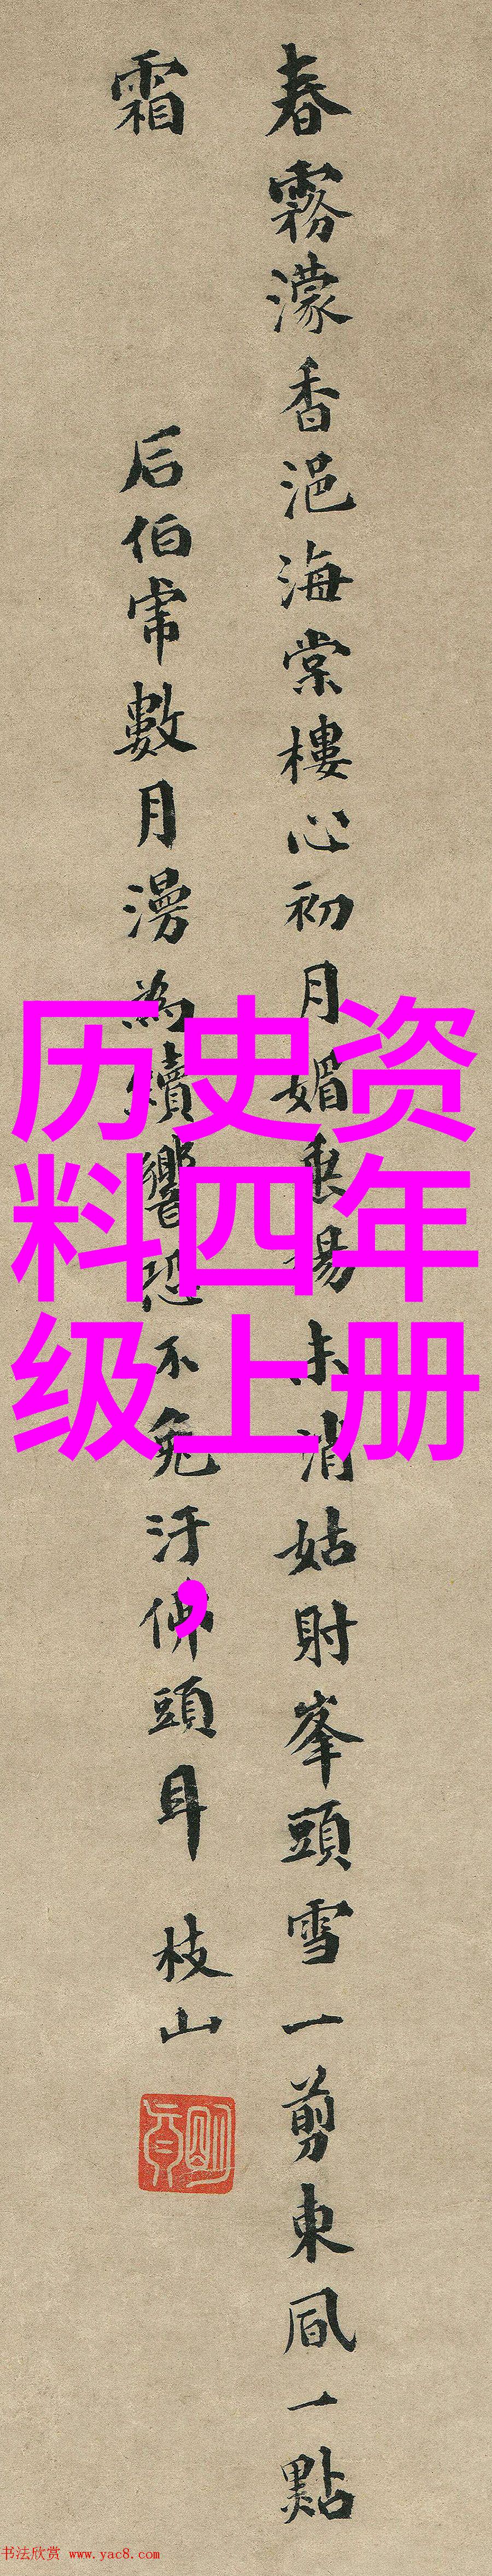 春霧濛香浥海棠樓心初月媚垂楊未消姑射峯頭雪一剪東風一點
霜
后伯常數月漫為續響恐不免汙佛頭耳
枝山
历史资
料四年
级上册
，
书法欣赏 www.yac8.com